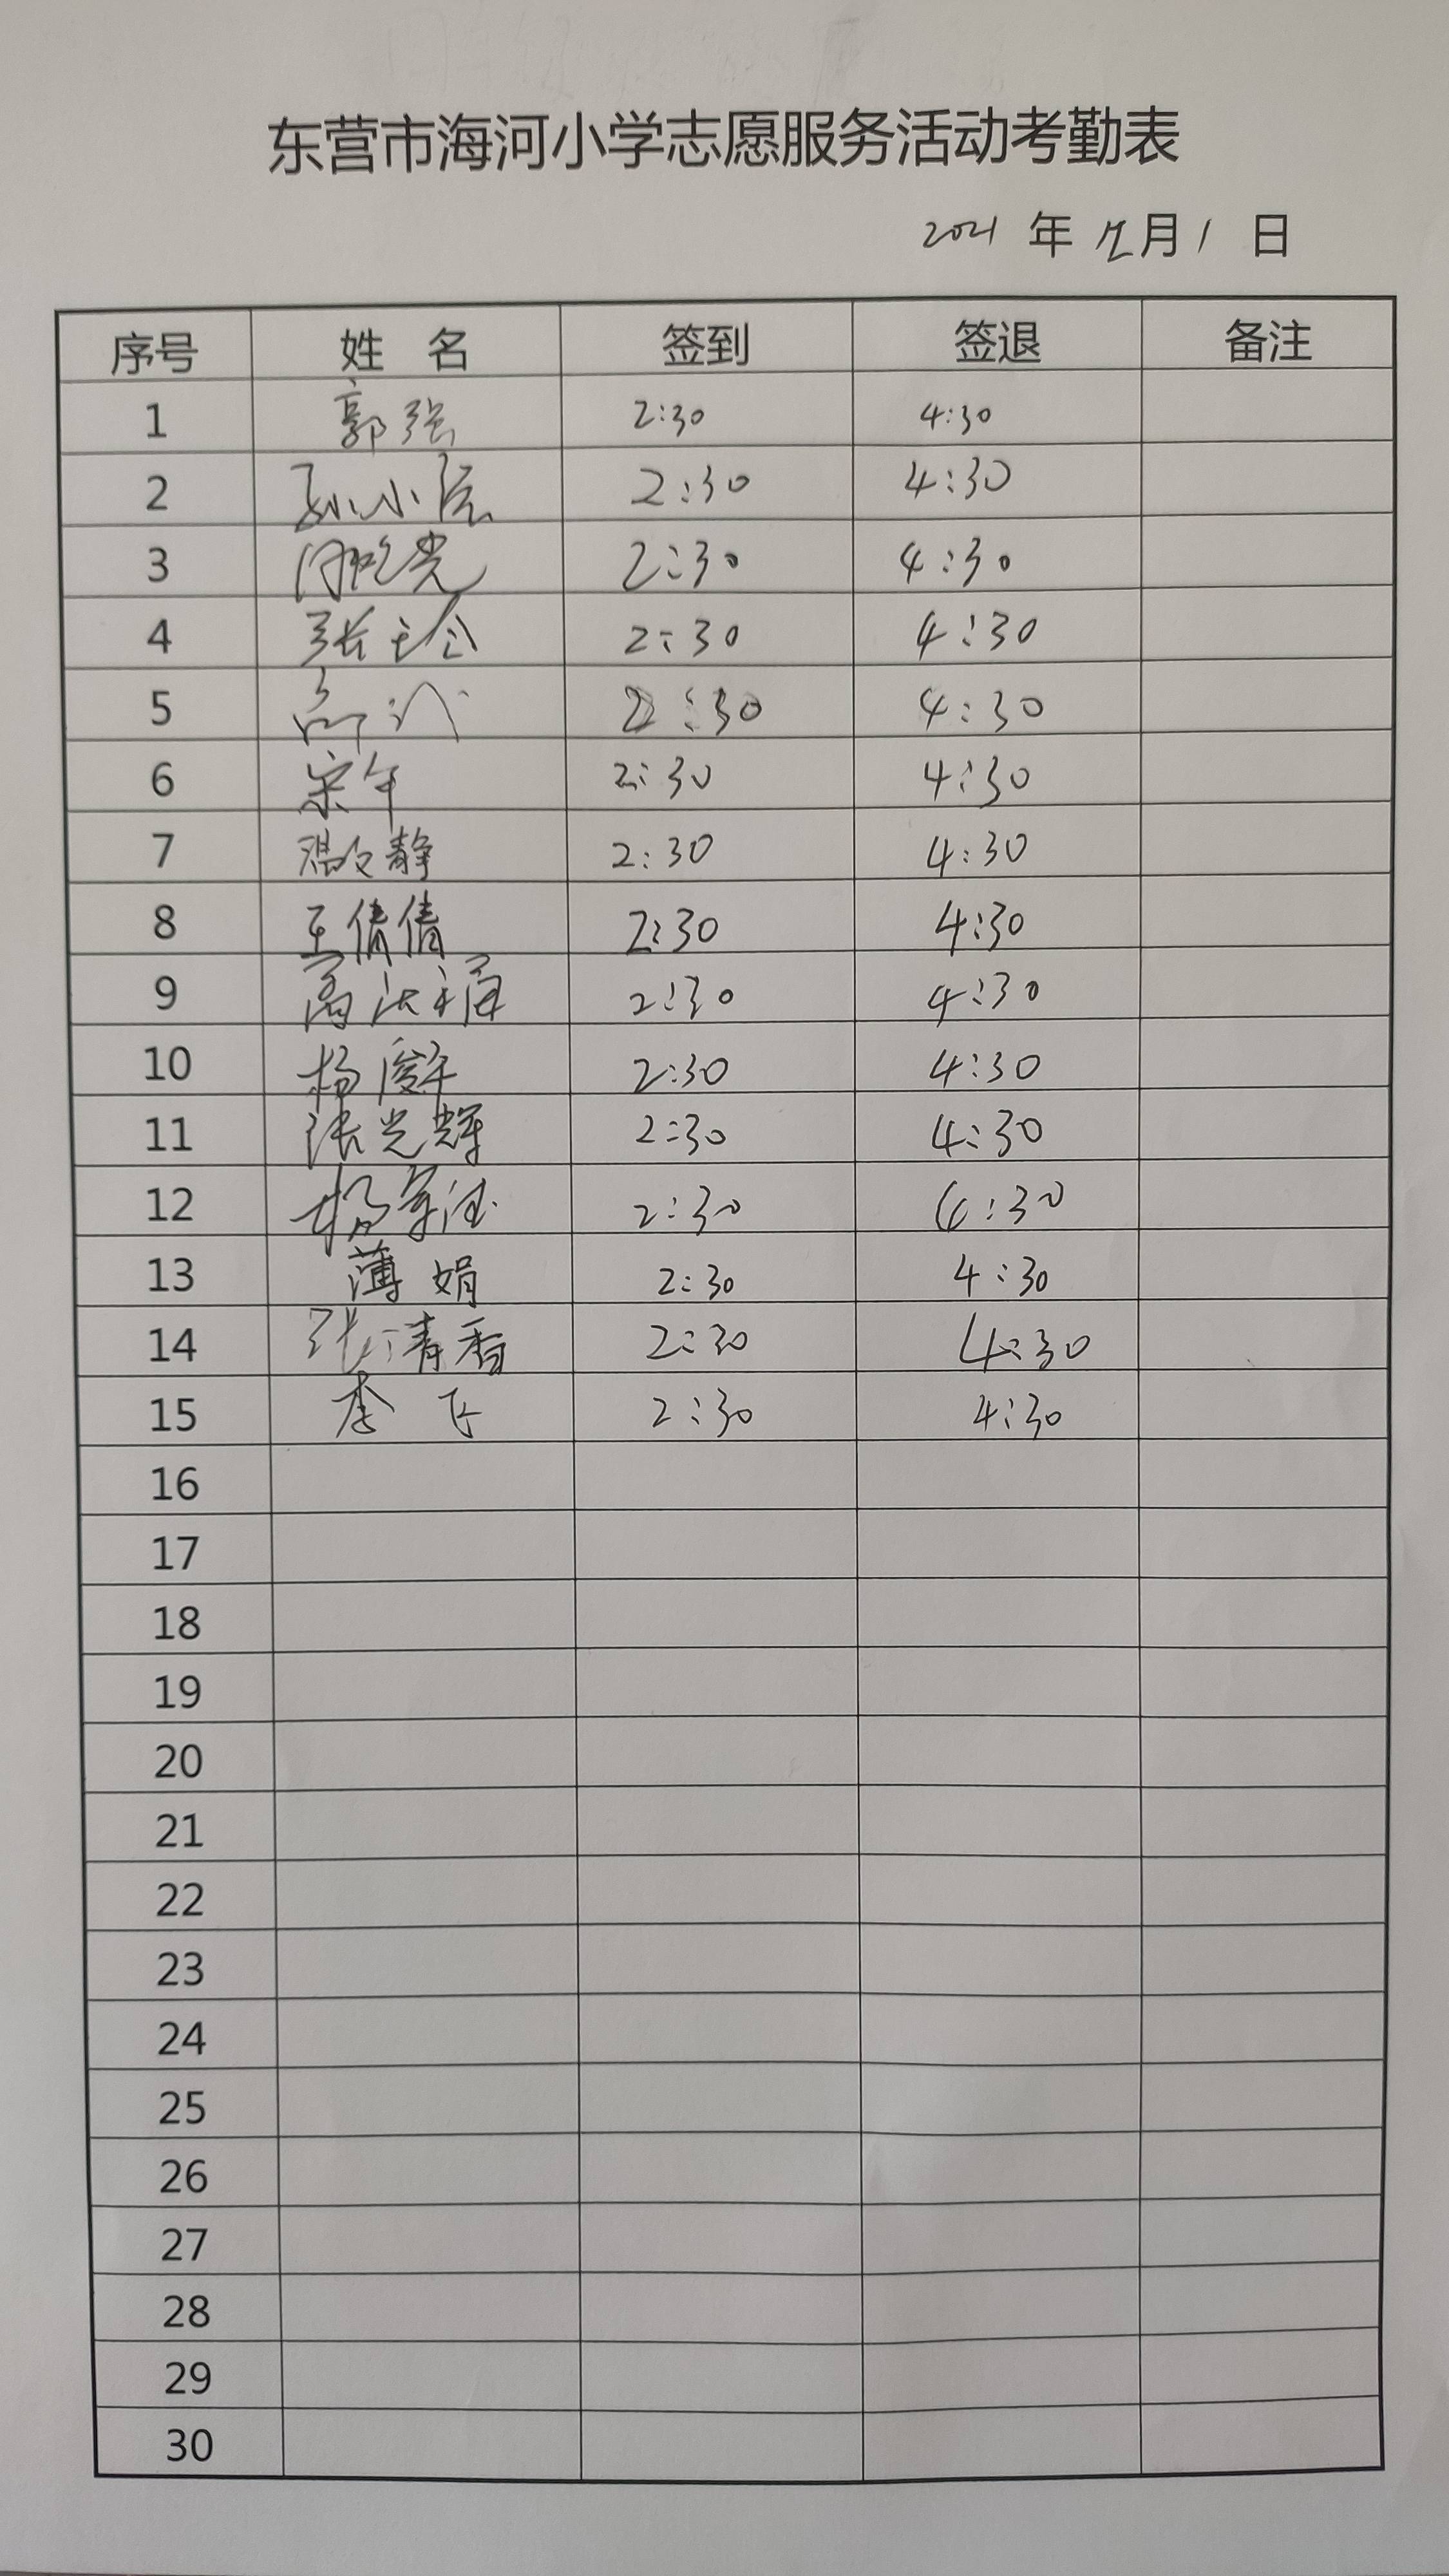 东营市海河小学志愿服务活动考勤表
2021 年 12月1 日
序号 姓 名 签到 签退 备注
1 郭强 2:30 4:30
2 孙小 2:30 4:30
3 2:30 4:30
4 张玉玲 2:30 4:30
5 2:30 4:30
6 宋午 2:30 4:30
7 静 2:30 4:30
8 王倩倩 2:30 4:30
9 2:30 4:30
10 杨 2:30 4:30
11 张光辉 2:30 4:30
12 杨 2:30 :30
13 薄 娟 2:30 4:30
14 张清香 2:30 4:30
15 李 飞 2:30 4:30
16
17
18
19
20
21
22
23
24
25
26
27
28
29
30